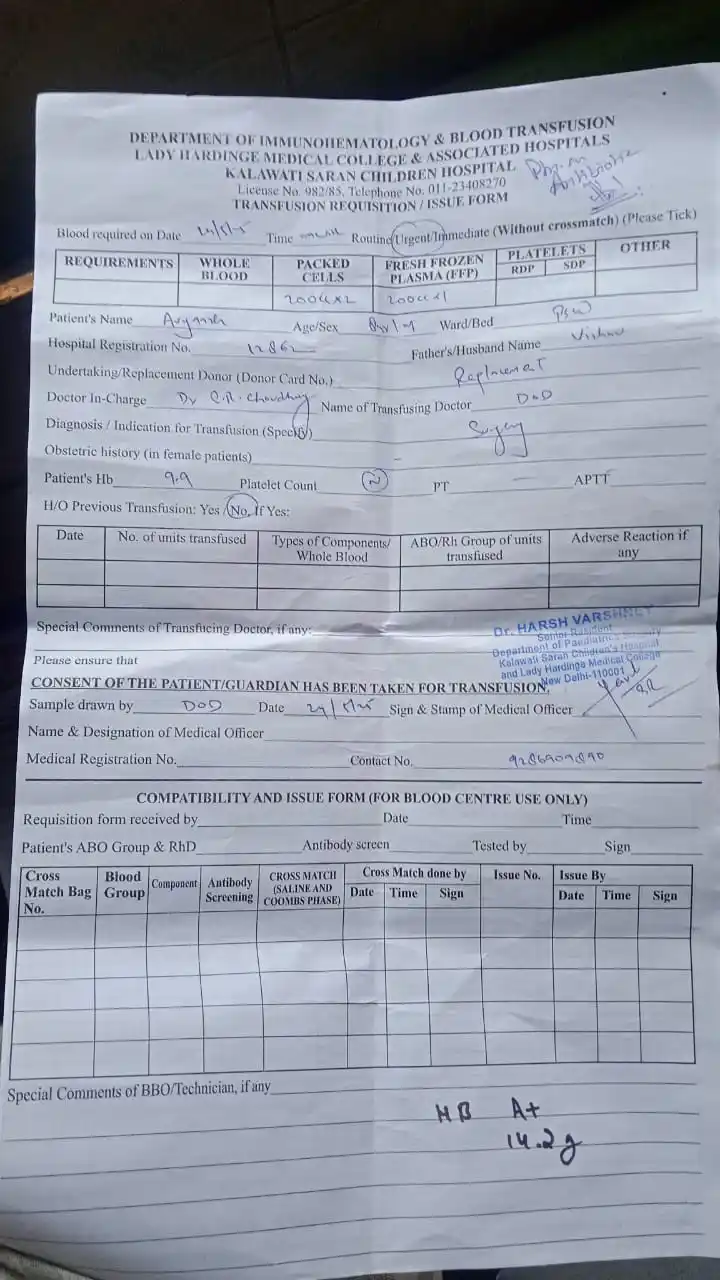 DEPARTMENT OF IMMUNOHEMATOLOGY & BLOOD TRANSFUSION
LADY HARDINGE MEDICAL COLLEGE & ASSOCIATED HOSPITALS
KALAWATI SARAN CHILDREN HOSPITAL
License No. 982/85, Telephone No. 011-23408270
TRANSFUSION REQUISITION / ISSUE FORM
Blood required on Date Time Routine/Urgent/Immediate (Without crossmatch) (Please Tick)
REQUIREMENTS WHOLE BLOOD PACKED CELLS FRESH FROZEN PLASMA (FFP) PLATELETS RDP SDP OTHER
200cc x2 200cc x1
Patient's Name Age/Sex Ward/Bed PSW
Hospital Registration No. 12862 Father's/Husband Name
Undertaking/Replacement Donor (Donor Card No.) Replacement
Doctor In-Charge Dr Name of Transfusing Doctor DOD
Diagnosis / Indication for Transfusion (Specify) Surgery
Obstetric history (in female patients) –
Patient's Hb 9.9 Platelet Count N PT – APTT
H/O Previous Transfusion: Yes / No, If Yes:
Date No. of units transfused Types of Components/ Whole Blood ABO/Rh Group of units transfused Adverse Reaction if any
Special Comments of Transfucing Doctor, if any:
Dr. HARSH VARSHNEY
Senior Resident
Department of Paediatric Surgery
Kalawati Saran Children's Hospital
and Lady Hardinge Medical College
New Delhi-110001
Please ensure that
CONSENT OF THE PATIENT/GUARDIAN HAS BEEN TAKEN FOR TRANSFUSION.
Sample drawn by DOD Date Sign & Stamp of Medical Officer
Name & Designation of Medical Officer
Medical Registration No. Contact No. 9286909890
COMPATIBILITY AND ISSUE FORM (FOR BLOOD CENTRE USE ONLY)
Requisition form received by Date Time
Patient's ABO Group & RhD Antibody screen Tested by Sign
Cross Match Bag No. Blood Group Component Antibody Screening CROSS MATCH (SALINE AND COOMBS PHASE) Cross Match done by Date Time Sign Issue No. Issue By Date Time Sign
Special Comments of BBO/Technician, if any
HB A+
14.2g